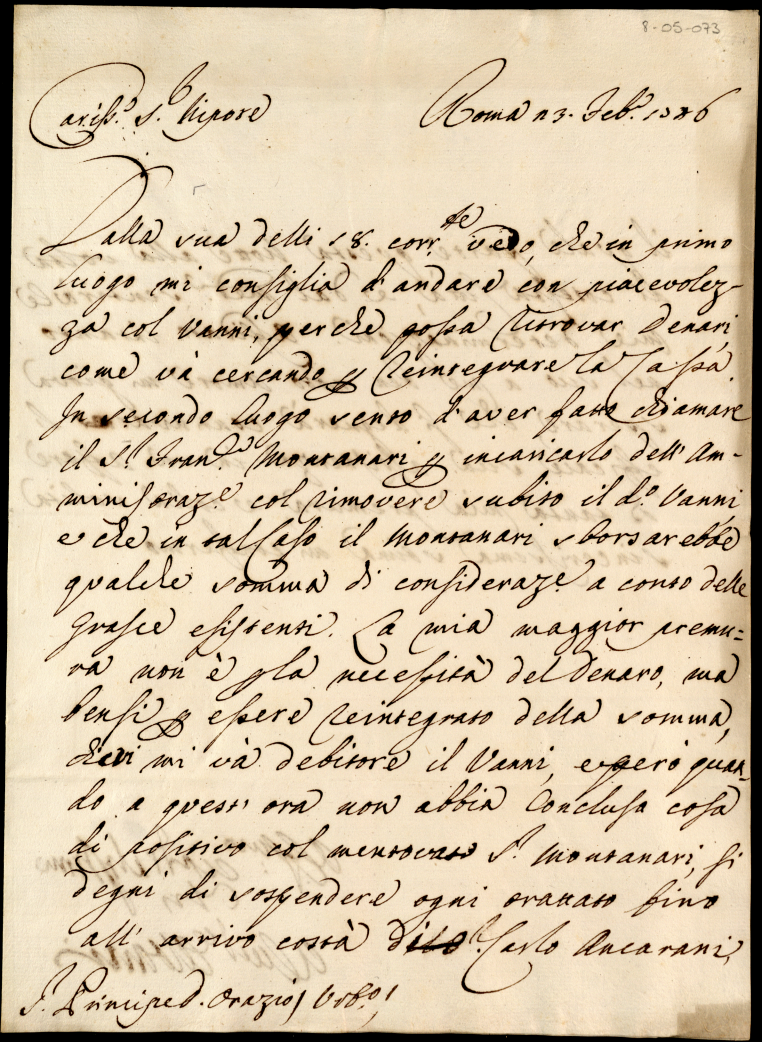 8-05-073
Cariss.o S.r Nipote Roma 23. Feb.o
Dalla sua delli 18. corr.te vedo, che in primo
luogo mi consiglia d'andare con piacevolez-
za col Vanni, perche possa ritrovar Denari
come và cercando p reintegrare la Cassa.
In secondo luogo sento d'aver fatto chiamare
il S.r Fran.co Montanari p incaricarlo dell'Am-
ministraz.e col rimovere subito il d.o Vanni
e che in tal Caso il Montanari sborsarebbe
qualche somma di consideraz.e a conto delle
grasce esistenti. La mia maggior premu=
ra non è p la necessità del Denaro, ma
bensi p essere reintegrato della somma,
di cui mi và debitore il Vanni, e però quan-
do a quest'ora non abbia Conclusa cosa
di positivo col mentovato S.r Montanari, si
degni di sospendere ogni trattato fino
all'arrivo costà di Carlo Ancarani,
S.r Principe d. Orazio / Urb.o /